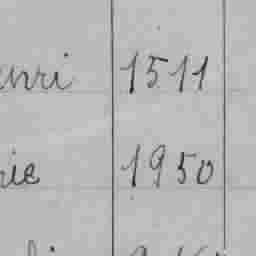 enri 1511
rie 1950